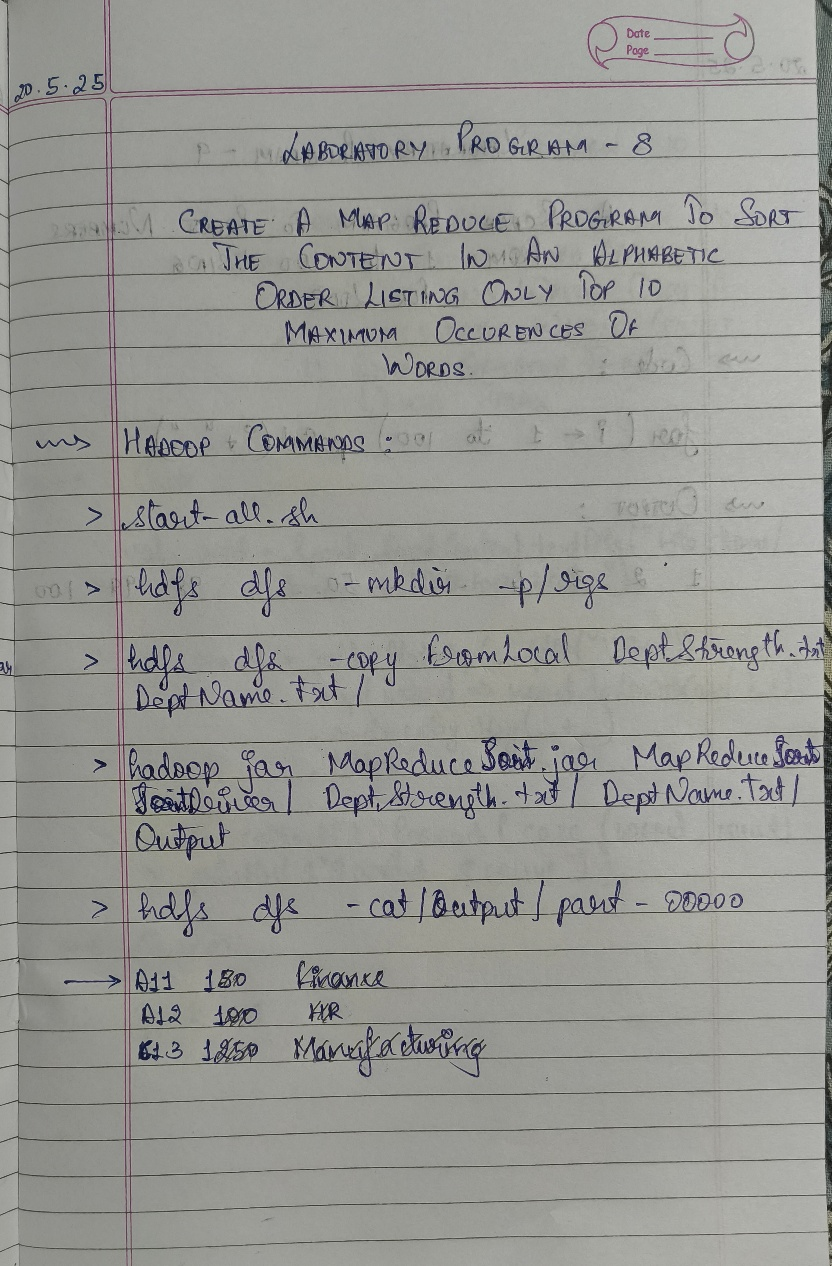 Date
Page
20.5.25
LABORATORY PROGRAM - 8
CREATE A MAP REDUCE PROGRAM TO SORT
THE CONTENT IN AN ALPHABETIC
ORDER LISTING ONLY TOP 10
MAXIMUM OCCURENCES OF
WORDS.
HADOOP COMMANDS :
> start-all.sh
> hdfs dfs -mkdir -p/rgs
> hdfs dfs -copy FromLocal DeptStrength.txt
DeptName.txt /
> hadoop jar MapReduce .jar MapReduce
/ DeptStrength.txt / DeptName.txt /
Output
> hdfs dfs -cat /Output / part - 00000
→ A11 Finance
A12 HR
13 Manufacturing